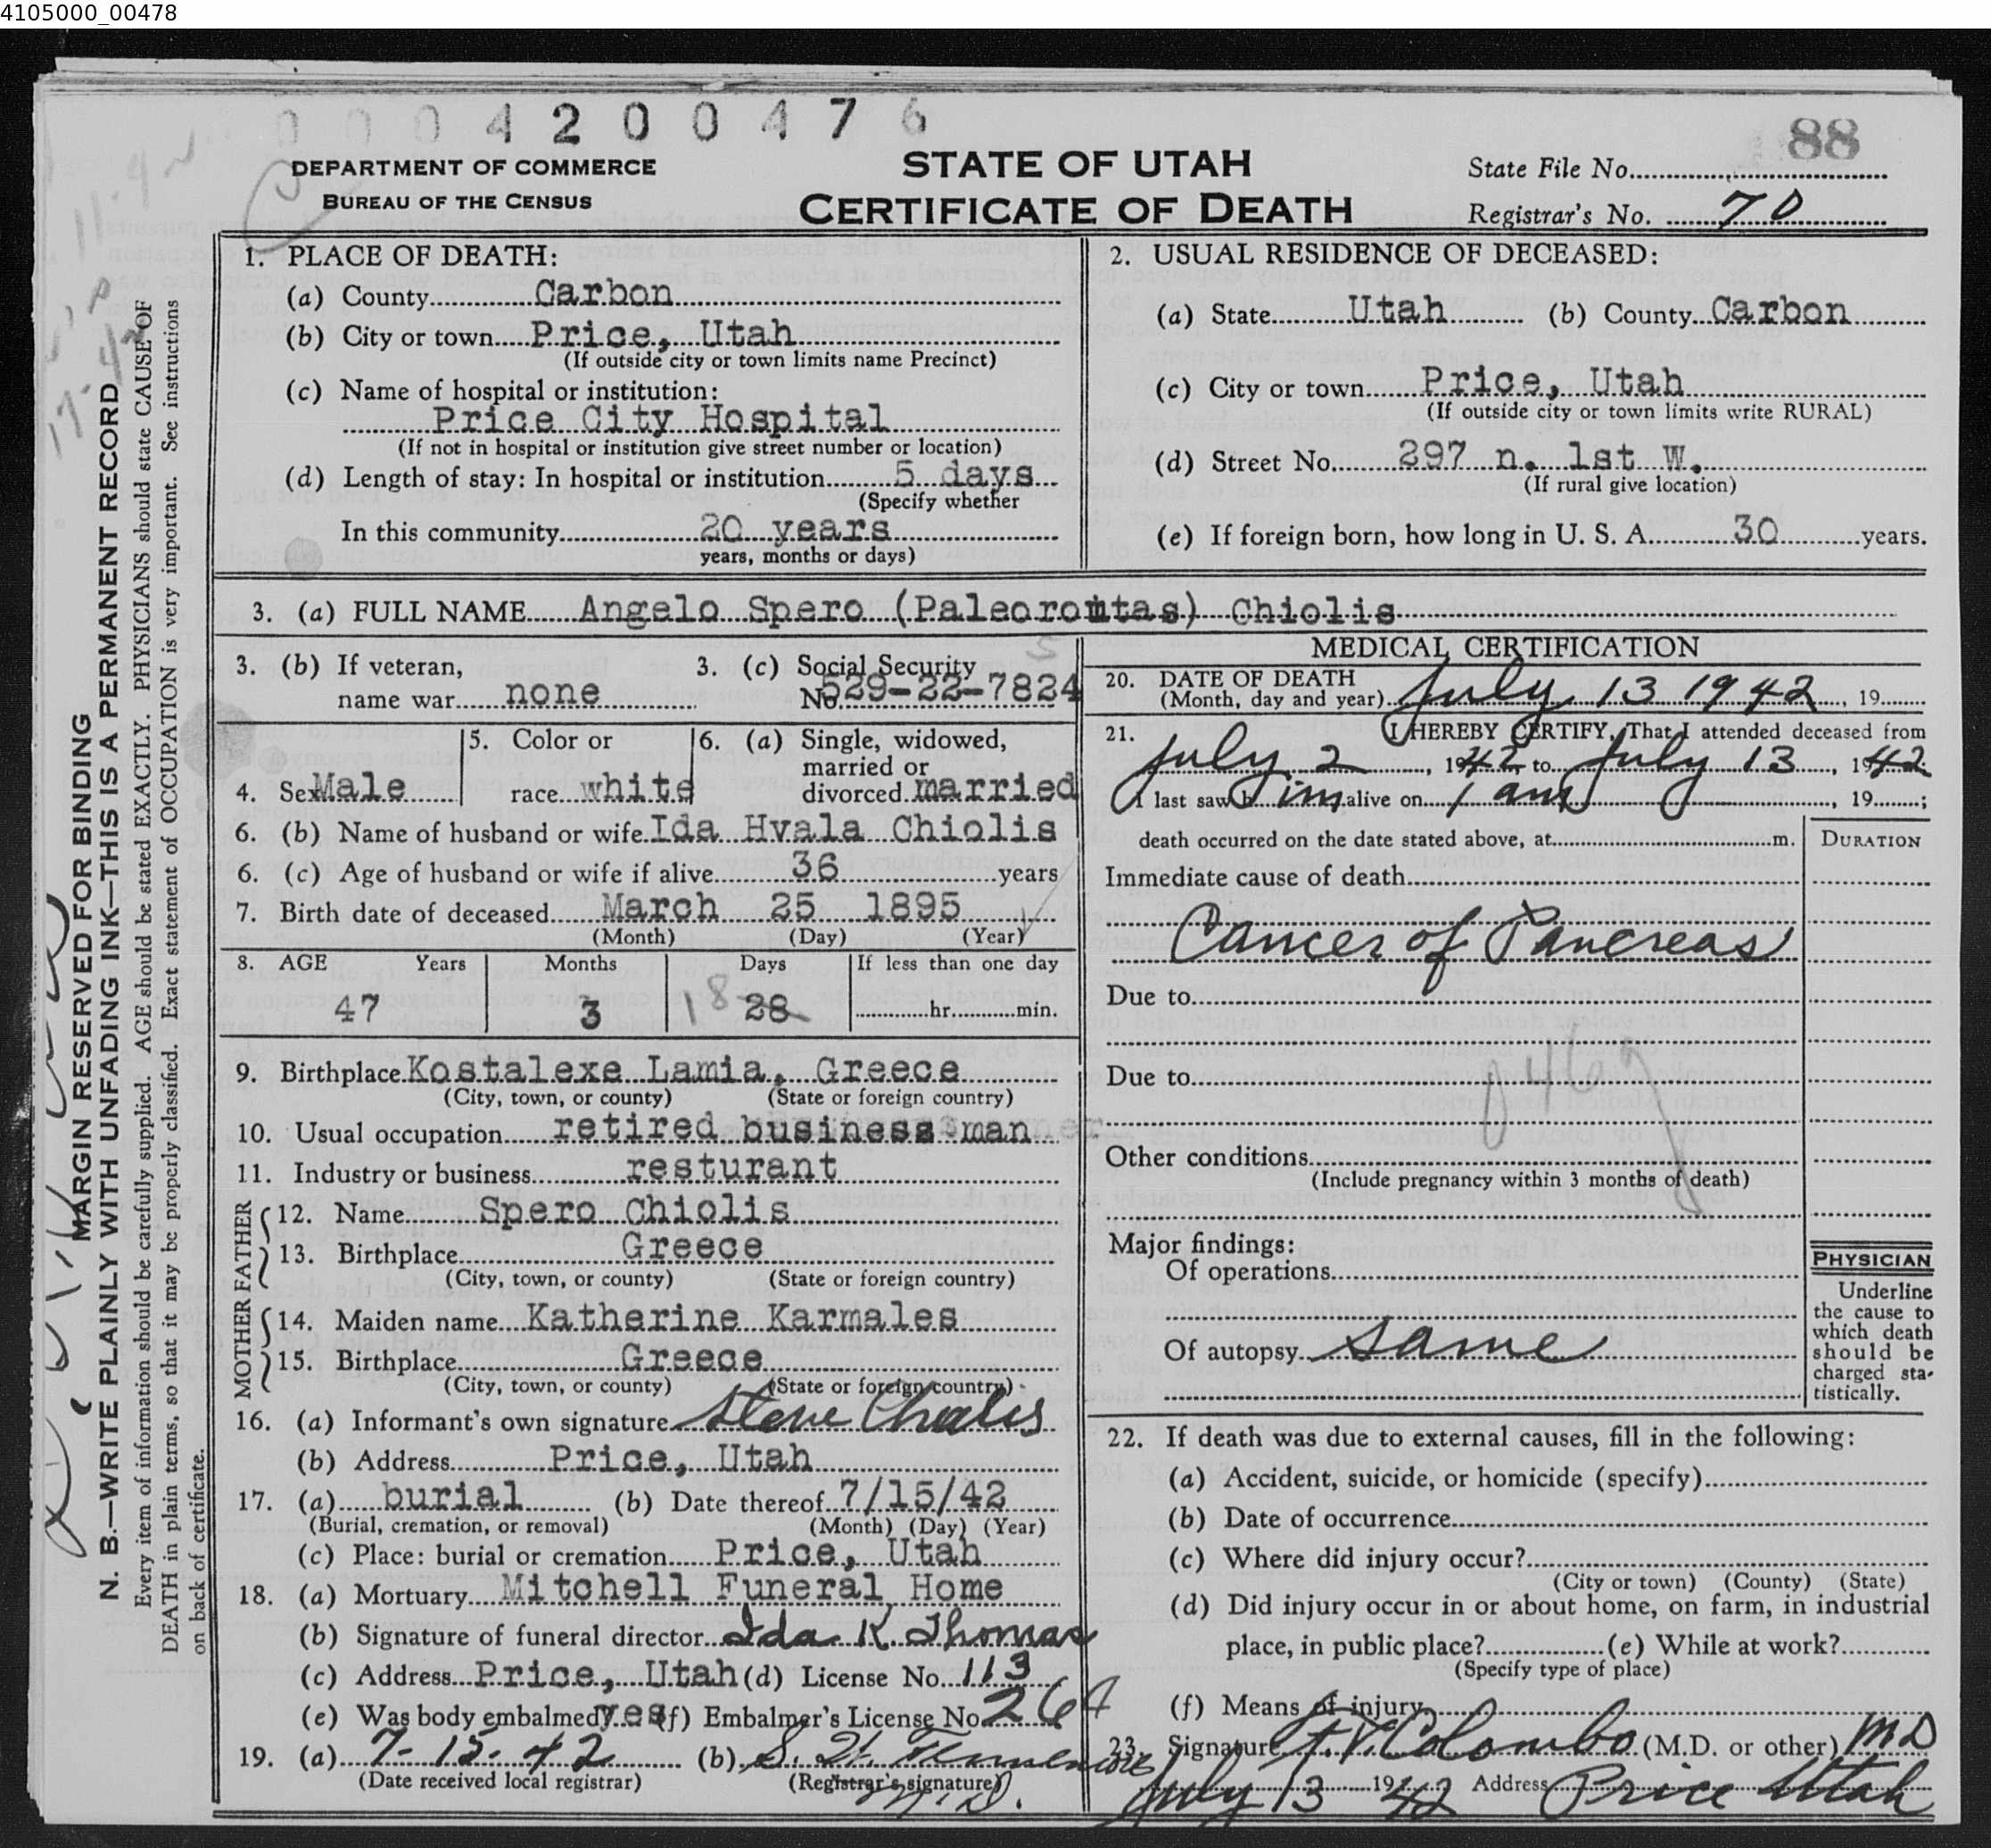 4105000_00478
0004200476
88
DEPARTMENT OF COMMERCE
BUREAU OF THE CENSUS
STATE OF UTAH
CERTIFICATE OF DEATH
State File No.
Registrar's No. 70
MARGIN RESERVED FOR BINDING
N. B.—WRITE PLAINLY WITH UNFADING INK—THIS IS A PERMANENT RECORD
Every item of information should be carefully supplied. AGE should be stated EXACTLY. PHYSICIANS should state CAUSE OF
DEATH in plain terms, so that it may be properly classified. Exact statement of OCCUPATION is very important. See instructions
on back of certificate.
1. PLACE OF DEATH:
(a) County Carbon
(b) City or town Price, Utah
(If outside city or town limits name Precinct)
(c) Name of hospital or institution:
Price City Hospital
(If not in hospital or institution give street number or location)
(d) Length of stay: In hospital or institution 5 days
(Specify whether
In this community 20 years
years, months or days)
2. USUAL RESIDENCE OF DECEASED:
(a) State Utah (b) County Carbon
(c) City or town Price, Utah
(If outside city or town limits write RURAL)
(d) Street No. 297 n. 1st W.
(If rural give location)
(e) If foreign born, how long in U. S. A. 30 years.
3. (a) FULL NAME Angelo Spero (Paleoromtas) Chiolis
3. (b) If veteran,
name war none
3. (c) Social Security
No. 529-22-7824
4. Sex Male
5. Color or
race white
6. (a) Single, widowed,
married or
divorced married
6. (b) Name of husband or wife Ida Hvala Chiolis
6. (c) Age of husband or wife if alive 36 years
7. Birth date of deceased March 25 1895
(Month) (Day) (Year)
8. AGE Years Months Days If less than one day
47 3 18 28 hr. min.
9. Birthplace Kostalexe Lamia, Greece
(City, town, or county) (State or foreign country)
10. Usual occupation retired business man
11. Industry or business resturant
FATHER
12. Name Spero Chiolis
13. Birthplace Greece
(City, town, or county) (State or foreign country)
MOTHER
14. Maiden name Katherine Karmales
15. Birthplace Greece
(City, town, or county) (State or foreign country)
16. (a) Informant's own signature Steve
(b) Address Price, Utah
17. (a) burial (b) Date thereof 7/15/42
(Burial, cremation, or removal) (Month) (Day) (Year)
(c) Place: burial or cremation Price, Utah
18. (a) Mortuary Mitchell Funeral Home
(b) Signature of funeral director Ida K. Thomas
(c) Address Price, Utah (d) License No. 113
(e) Was body embalmed yes (f) Embalmer's License No. 264
19. (a) 7-15-42 (b)
(Date received local registrar) (Registrar's signature)
M.D.
MEDICAL CERTIFICATION
20. DATE OF DEATH
(Month, day and year) July 13 1942, 19
21. I HEREBY CERTIFY, That I attended deceased from
July 2, 1942, to July 13, 1942
I last saw him alive on 1 am, 19 ;
death occurred on the date stated above, at m.
DURATION
Immediate cause of death
Cancer of Pancreas
Due to
Due to
Other conditions
(Include pregnancy within 3 months of death)
Major findings:
Of operations
Of autopsy same
PHYSICIAN
Underline
the cause to
which death
should be
charged sta-
tistically.
22. If death was due to external causes, fill in the following:
(a) Accident, suicide, or homicide (specify)
(b) Date of occurrence
(c) Where did injury occur?
(City or town) (County) (State)
(d) Did injury occur in or about home, on farm, in industrial
place, in public place? (e) While at work?
(Specify type of place)
(f) Means of injury
23. Signature F.V. Colombo (M.D. or other) MD
July 13 1942 Address Price Utah